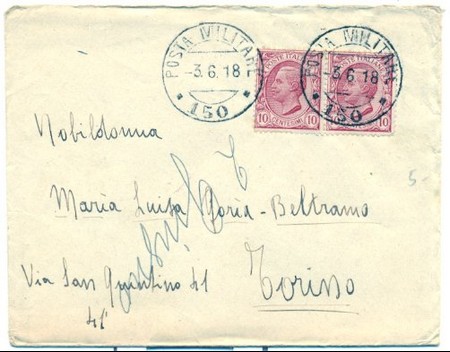 POSTA MILITARE
-3.6.18
* 150 *
POSTE ITALIANE
10 CENTESIMI 10
POSTA MILITARE
-3.6.18
* 150 *
POSTE ITALIANE
10 CENTESIMI 10
Nobildonna
5-
Maria Luisa Doria-Beltramo
Via San Quintino 41
Torino
41